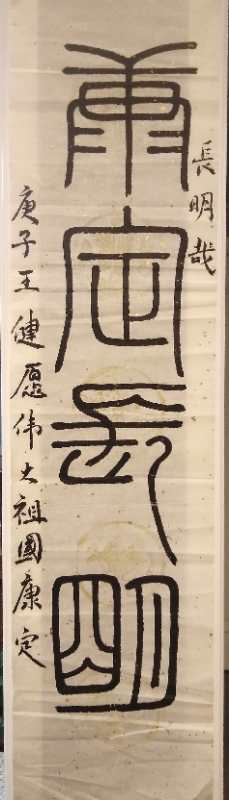 康定長明
庚子王健愿伟大祖國康定
長明哉